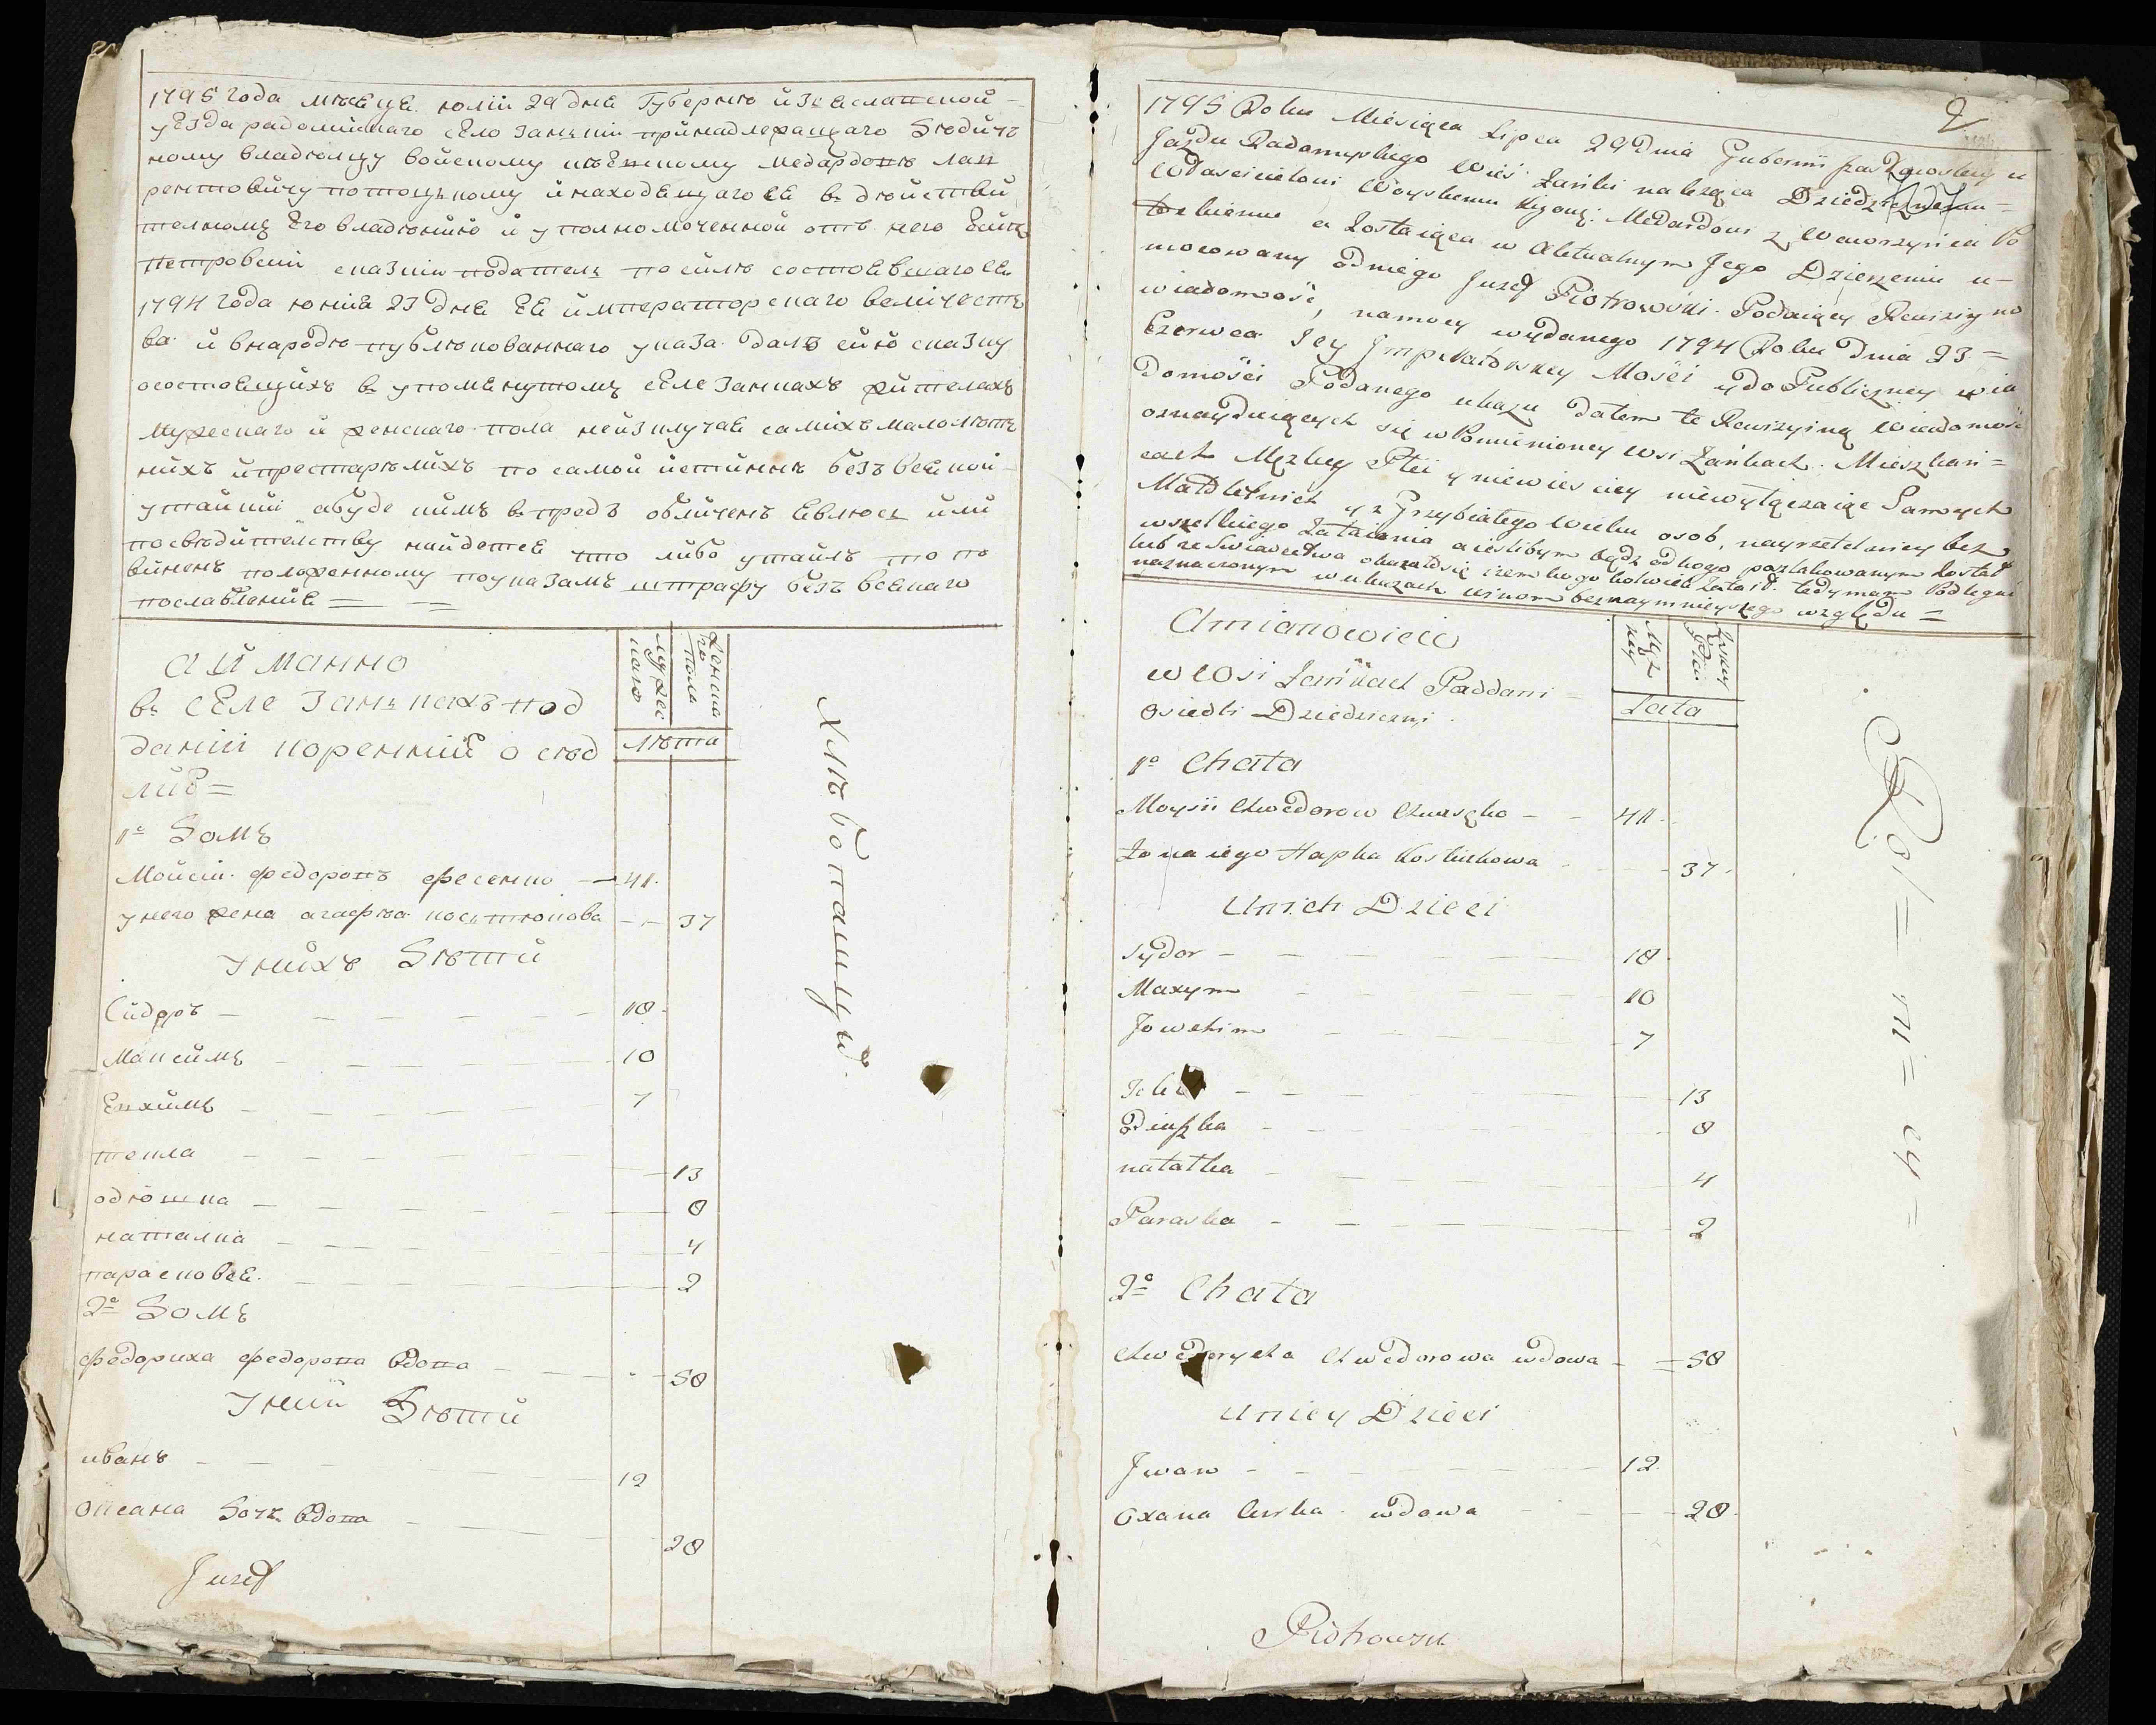 1795 года мѣсяца юлія 29 дня Губерніи изяславской
уезда радомишлаго село Занкіи принадлежащаго дѣдич
ному владѣльцу войскому медардовѣ лав
рентовичу потоцкому и находящагося в дѣйстви
телномъ его владѣніи и уполномоченной отъ него
петровскій сказкіи податель по силѣ состоявшагося
1794 года юнія 23 дня ея императорскаго величеств
ва и внародѣ публѣкованнаго указа далъ сию сказку
осостоящихъ в упомянутомъ селе занкахъ жителяхъ
мужескаго и женскаго пола неизключая самихъ малолѣт
нихъ и престарѣлихъ по самой истиннѣ безъ всякой
утайкиі абуде кимъ впредь обличенъ явлюся или
посвѣдителству найдется что либо утаилъ то по
виненъ положенному поуказамъ штрафу безъ всякаго
послабленія
а имянно
в селе Занкахъ под
даніи коренніи осѣд
ліе
мужескаго
женскаго пола
лѣта
1º Домъ
Мойсій федоровъ фесенко 41
унего жена агафѣа костюкова 37
Унихъ Дѣти
Сидоръ 18
Максимъ 10
Евхимъ 7
текла 13
одѣошка 8
наталка 4
парасковея 2
2º Домъ
федориха федорова вдова 58
Уніи Дѣти
иванъ 12
оксана дочь вдова 28
Juzef
хлѣбопашци
2
1795 Roku Miesiąca Lipca 29 Dnia Gubernii Izasławskiey u
Jazdu Radomyskiego Wieś Zańki naleząca Dziedzicznemu
Włascicielowi Woyskemu Medardowi z Wawrzyńca Po
tockiemu a Zostaiąca w Aktualnym Jego Dzierzeniu u
mocowany odniego Juzef Piotrowski Podaiący Rewizyiną
wiadomość, namocy wydanego 1794 Roku Dnia 23
Czerwca Jey Jmperatorskey Mosci y do Publiczney wia
domości Podanego ukazu dałem te Rewizyiną Wiadomość
oznayduiących się wPomienioney Wsi Zańkach Mieszkań
cach Męzkey Płci y niewiesciey niewyłączaiąc Samych
Małoletnich y z Grzybiałego Wieku osob, nayrzetelniey bez
wszelkiego Zataienia aieslibym bądz odkogo poszlakowanym został
lub ze Swiadectwa okazałosię izem kogo kolwiek Zataił tedy mam Podlegać
naznaczonym w ukazach winom beznaymnieyszego względu
Amianowicie
w Wsi Zańkach Poddani
osiedli Dziedziczni
Męz
key
Zęskey
Płci
Lata
1º Chata
Moysii Chwedorow Chwesęko 41
Zona iego Hapka Kostiukowa 37
Unich Dzieci
Sydor 18
Maxym 10
Jowchim 7
13
Odiuszka 8
natałka 4
Paraska 2
2º Chata
Chwedorycha Chwedorowa wdowa 58
Uniey Dzieci
Jwan 12
Oxana Curka wdowa 28
Rol=ni=cy=
Piotrowski